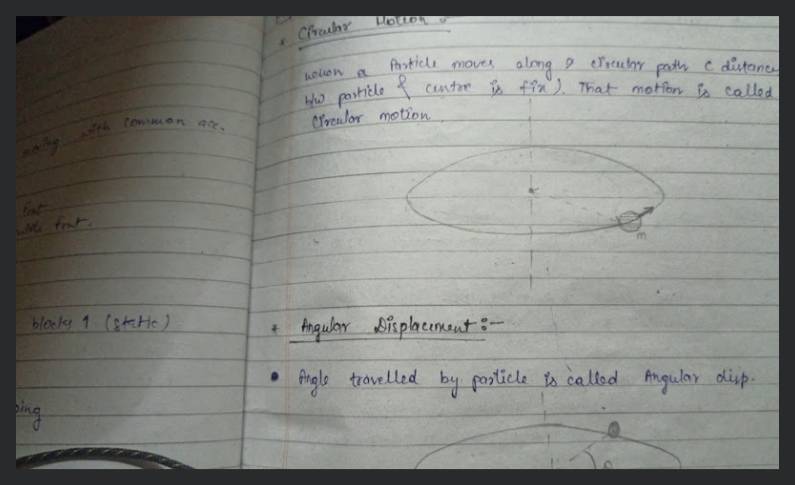 * Circular Motion :-
when a Particle moves along a circular path ( distance
b/w particle & centre is fix ). That motion is called
Circular motion.
m
* Angular Displacement :-
• Angle travelled by particle is called Angular disp.
with common acc.
blocks 1 (static)